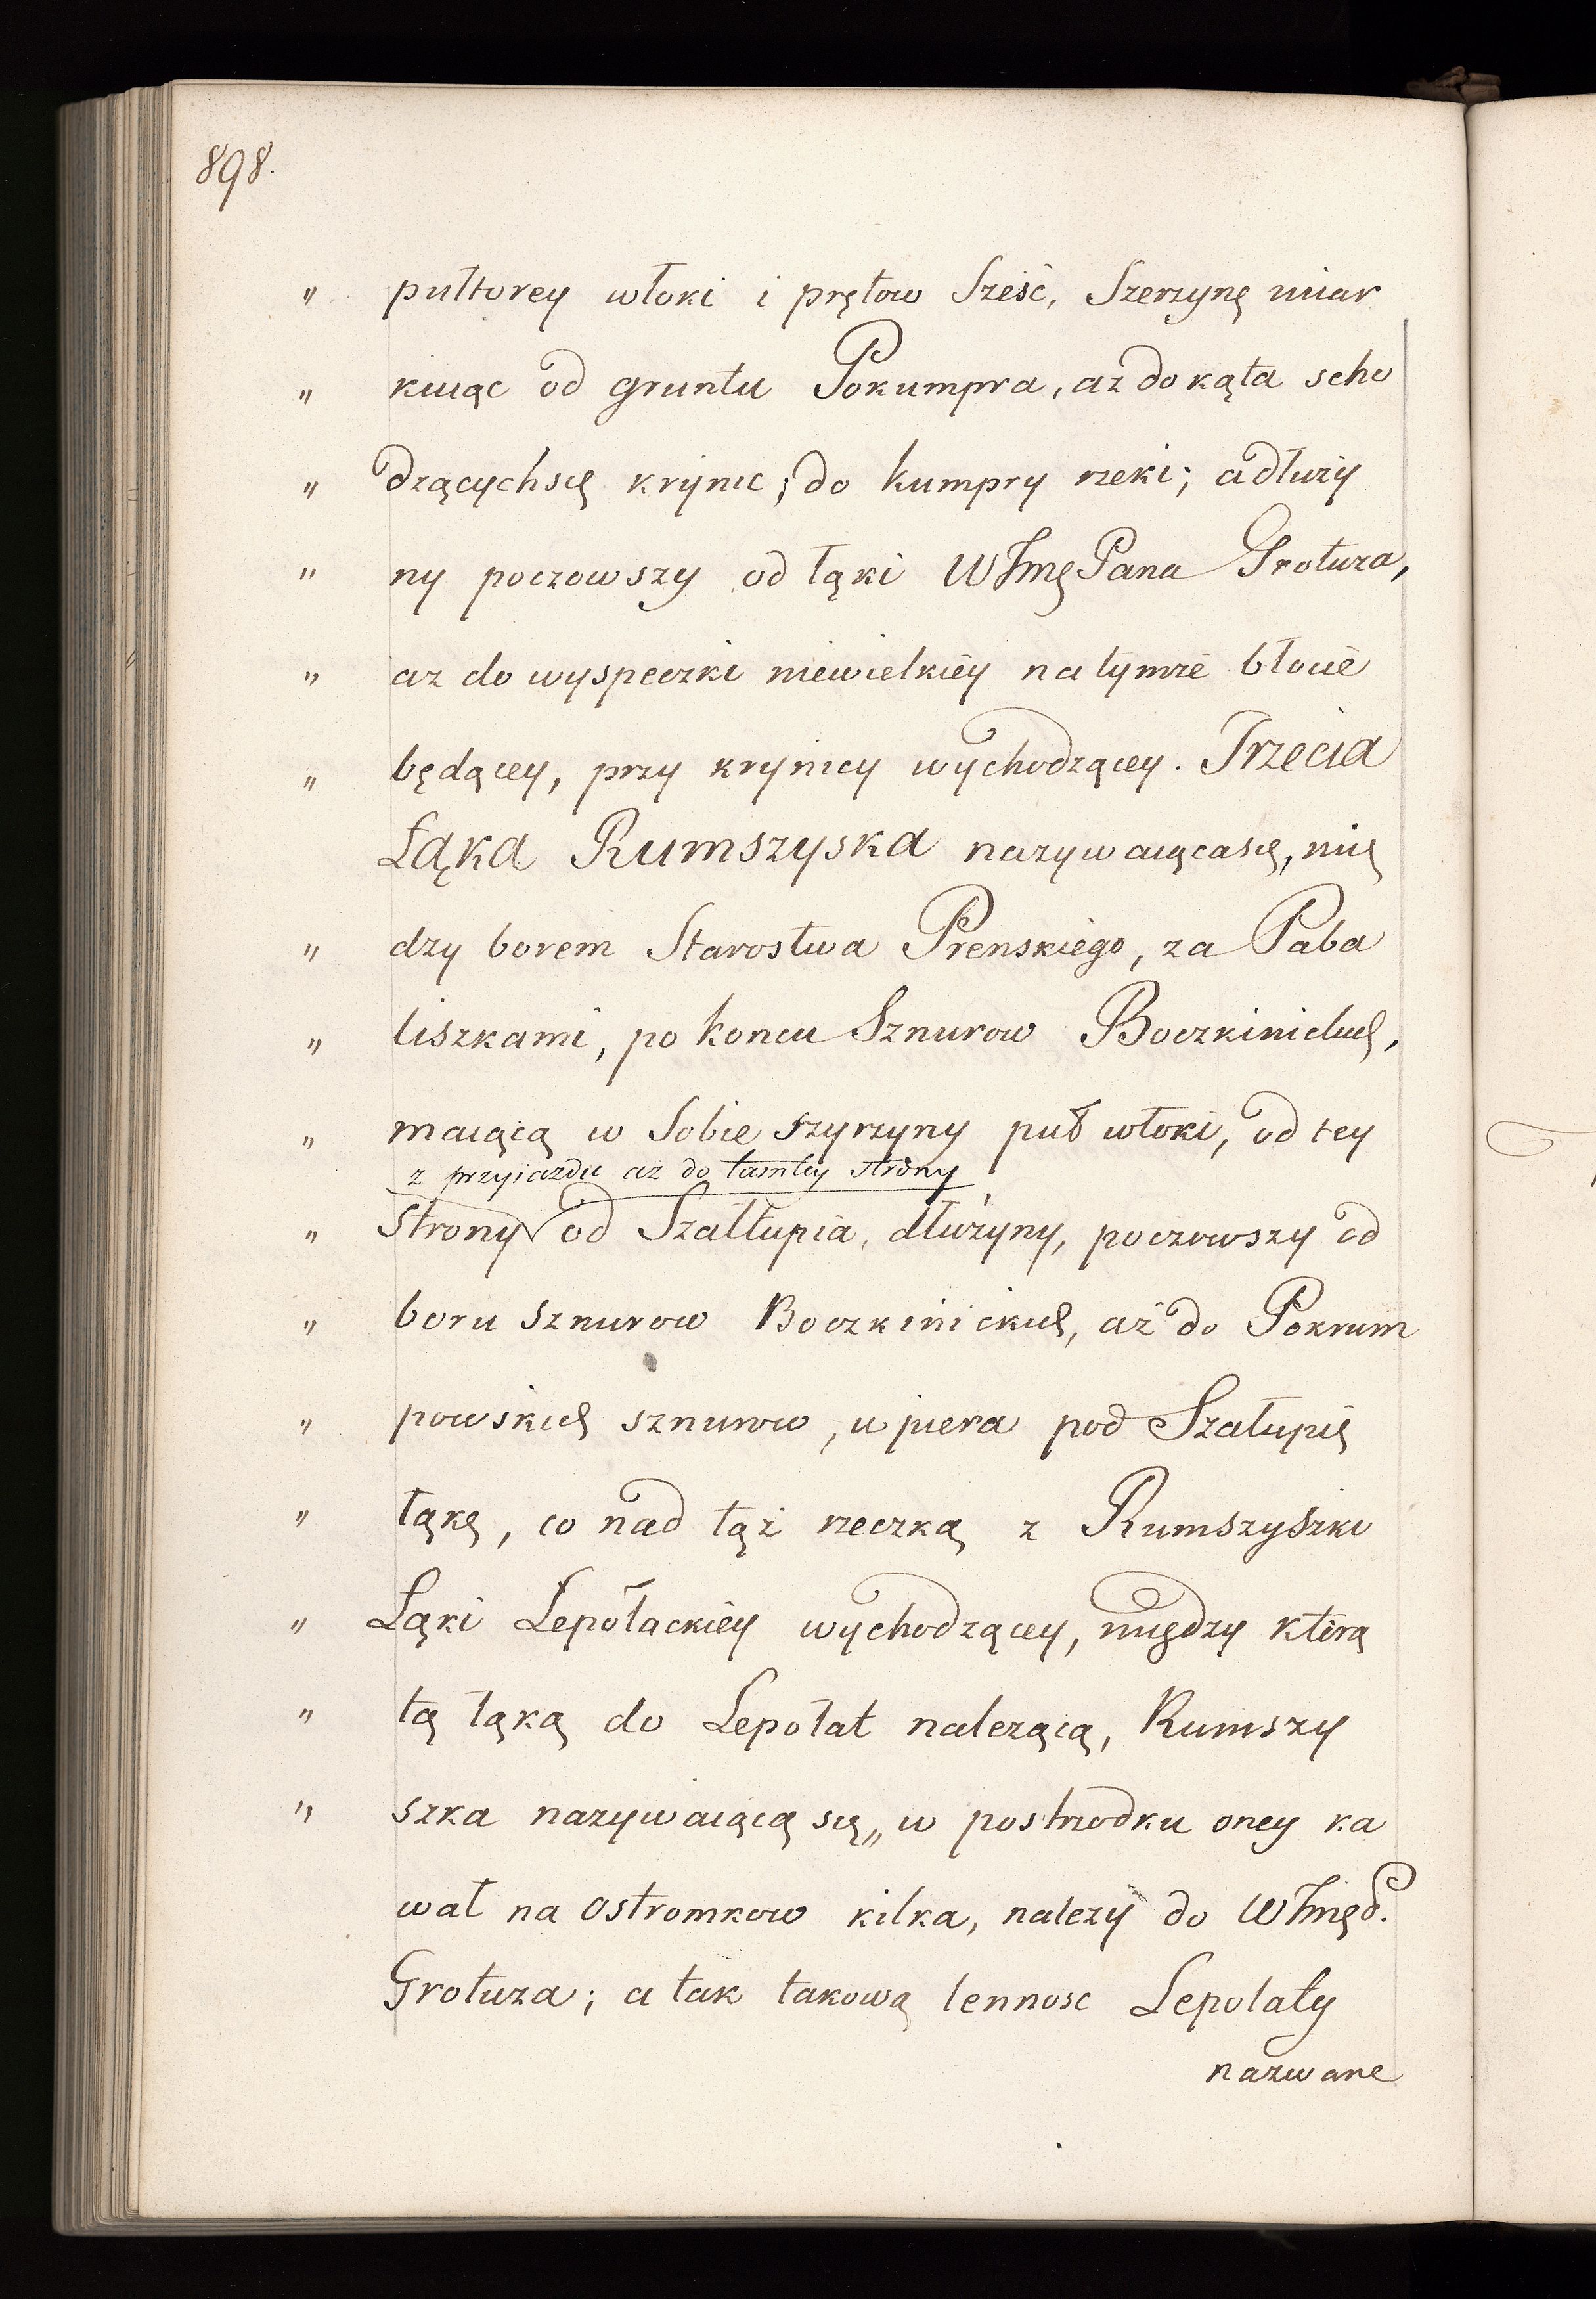 898.
" pułtorey włoki i prętow Sześć, Szerzynę miar
" kuiąc od gruntu Pokumpra, az do kąta scho
" dzącychsię krynic; do kumpry rzeki; a dłuży
" ny poczowszy od łąki WJmę Pana Grotuza,
" az do wyspeczki niewielkiey na tymże błocie
" będącey, przy krynicy wychodzącey. Trzecia
Łąka Rumszyska nazywaiącasię, mię
" dzy borem Starostwa Prenskiego, za Paba
" liszkami, po koncu Sznurow Boczkinickich,
" maiącą w Sobie szyrzyny puł włoki, od tey
z przyiazdu aż do tamtey strony
" strony od Szałtupia, dłużyny, poczowszy od
" boru Sznurow Boczkinickich, aż do Pokrum
" powskich sznurow, upiera pod Szałupię
" łąkę, co nad tąż rzeczką z Rumszyszki
" Łąki Lepołackiey wychodzącey, między którą
" tą łąką do Lepołat nalezącą, Rumszy
" szka nazywaiącą się„ w postrzodku oney ka
wał na Ostromkow kilka, nalezy do WJmęP.
Grotuza; a tak takową lennosc Lepolaty
nazwane